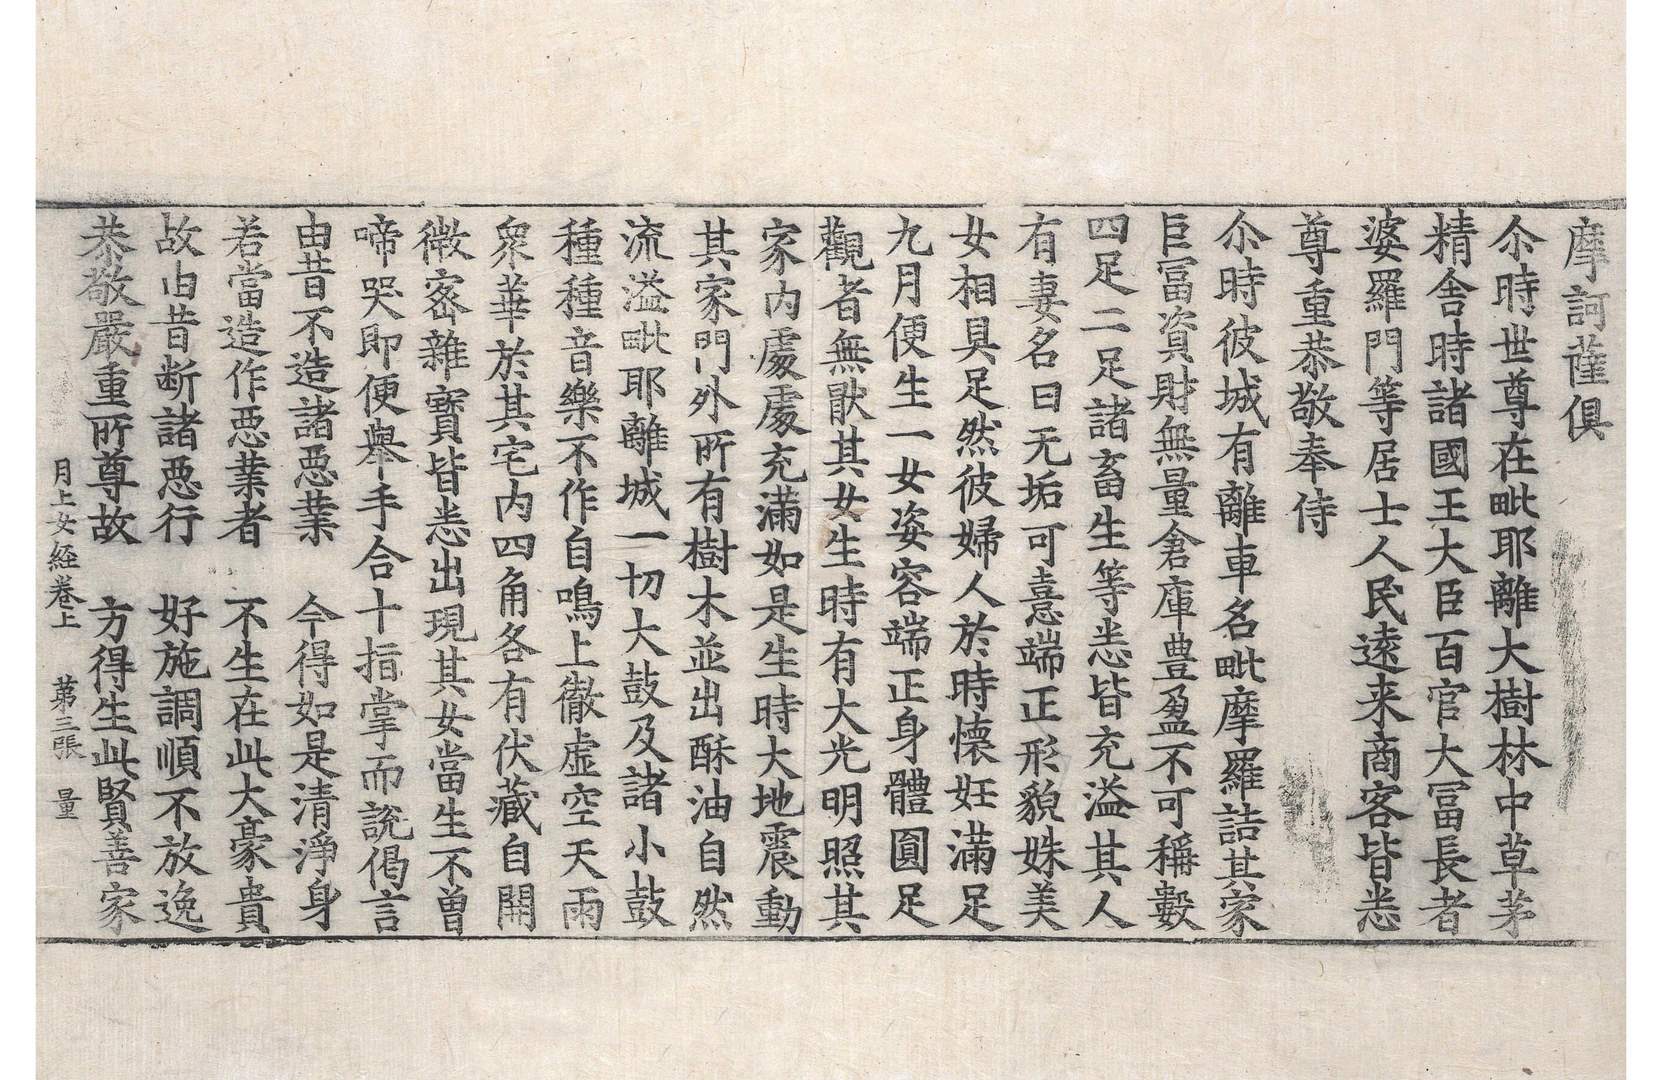 摩訶薩俱
尒時世尊在毗耶離大樹林中草茅
精舎時諸國王大臣百官大冨長者
婆羅門等居士人民遠来商客皆悉
尊重恭敬奉侍
尒時彼城有離車名毗摩羅詰其家
巨冨資財無量倉庫豊盈不可稱數
四足二足諸畜生等悉皆充溢其人
有妻名曰无垢可憙端正形貌姝美
女相具足然彼婦人於時懷妊滿足
九月便生一女姿容端正身體圓足
觀者無猒其女生時有大光明照其
家内處處充滿如是生時大地震動
其家門外所有樹木並出酥油自然
流溢毗耶離城一切大鼓及諸小鼓
種種音樂不作自鳴上徹虚空天雨
衆華於其宅内四角各有伏藏自開
微密雜寶皆悉出現其女當生不曾
啼哭即便舉手合十指掌而說偈言
由昔不造諸惡業　今得如是清淨身
若當造作惡業者　不生在此大豪貴
故由昔断諸惡行　好施調順不放逸
恭敬嚴重所尊故　方得生此賢善家
月上女経卷上　第三張　量